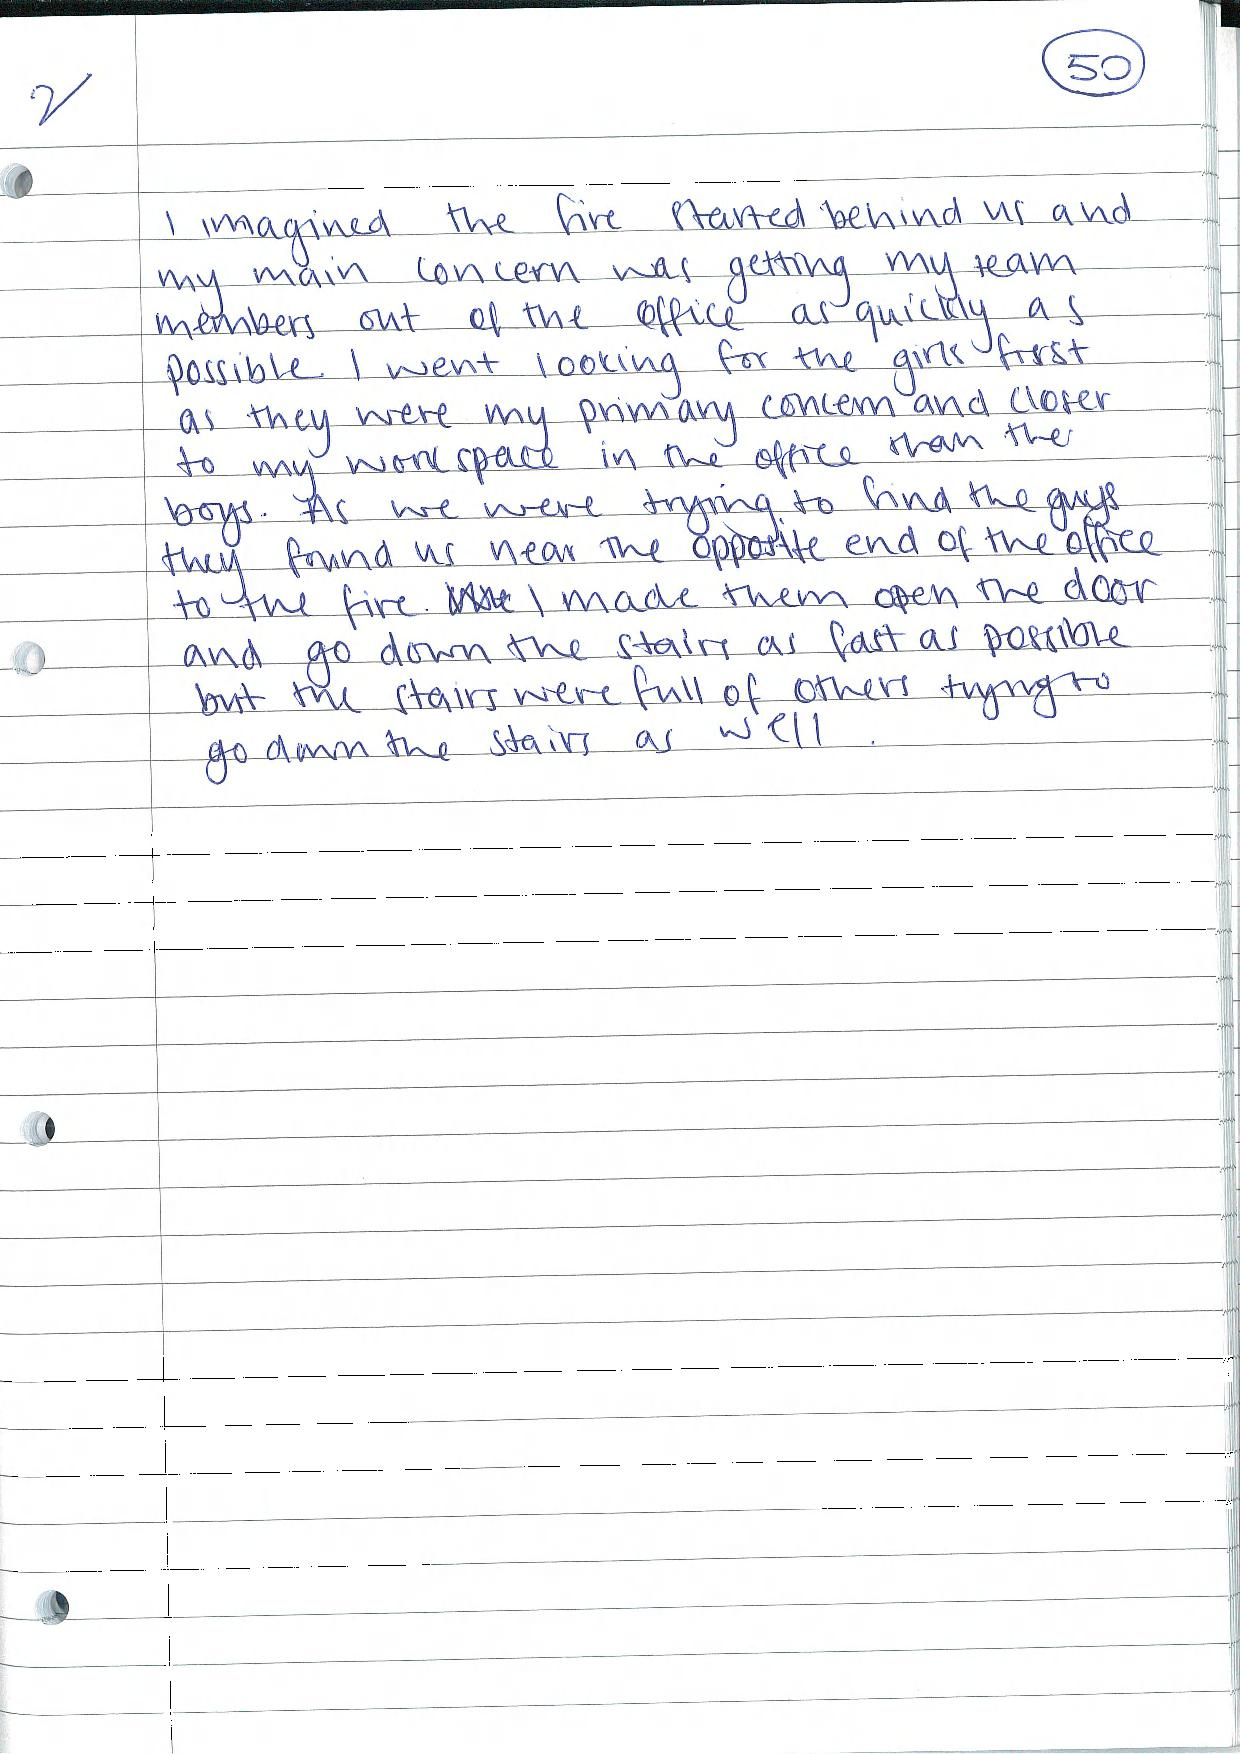 2
50
I imagined the fire started behind us and
my main concern was getting my team
members out of the office as quickly as
possible. I went looking for the girls first
as they were my primary concern and closer
to my workspace in the office than the
boys. As we were trying to find the guys
they found us near the opposite end of the office
to the fire. I made them open the door
and go down the stairs as fast as possible
but the stairs were full of others trying to
go down the stairs as well.